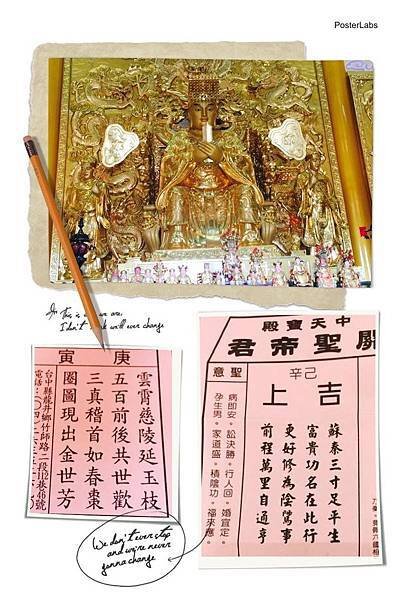 PosterLabs
This is we are,
I don't will ever change
庚寅
雲霄慈陵延玉枝
五百前後共世歡
三真稽首如春棗
圈圖現出金世芳
台中縣龍井鄉竹師路二段112巷46號
電話：(〇四)
中天寶殿
關聖帝君
辛己
上吉
蘇秦三寸足平生
富貴功名在此行
更好修為陰騭事
前程萬里自通亨
聖意
病即安。訟決勝。行人回。婚宜定。
孕生男。家道盛。積陰功。福來應。
We don't ever stop
and we're never
gonna change